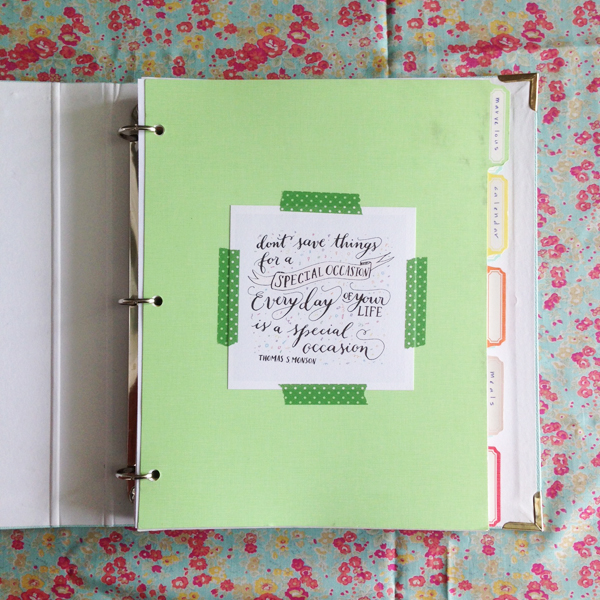 don't save things
for a
SPECIAL OCCASION
Everyday OF your
LIFE
is a special
occasion
THOMAS S MONSON
marvelous
calendar
meals